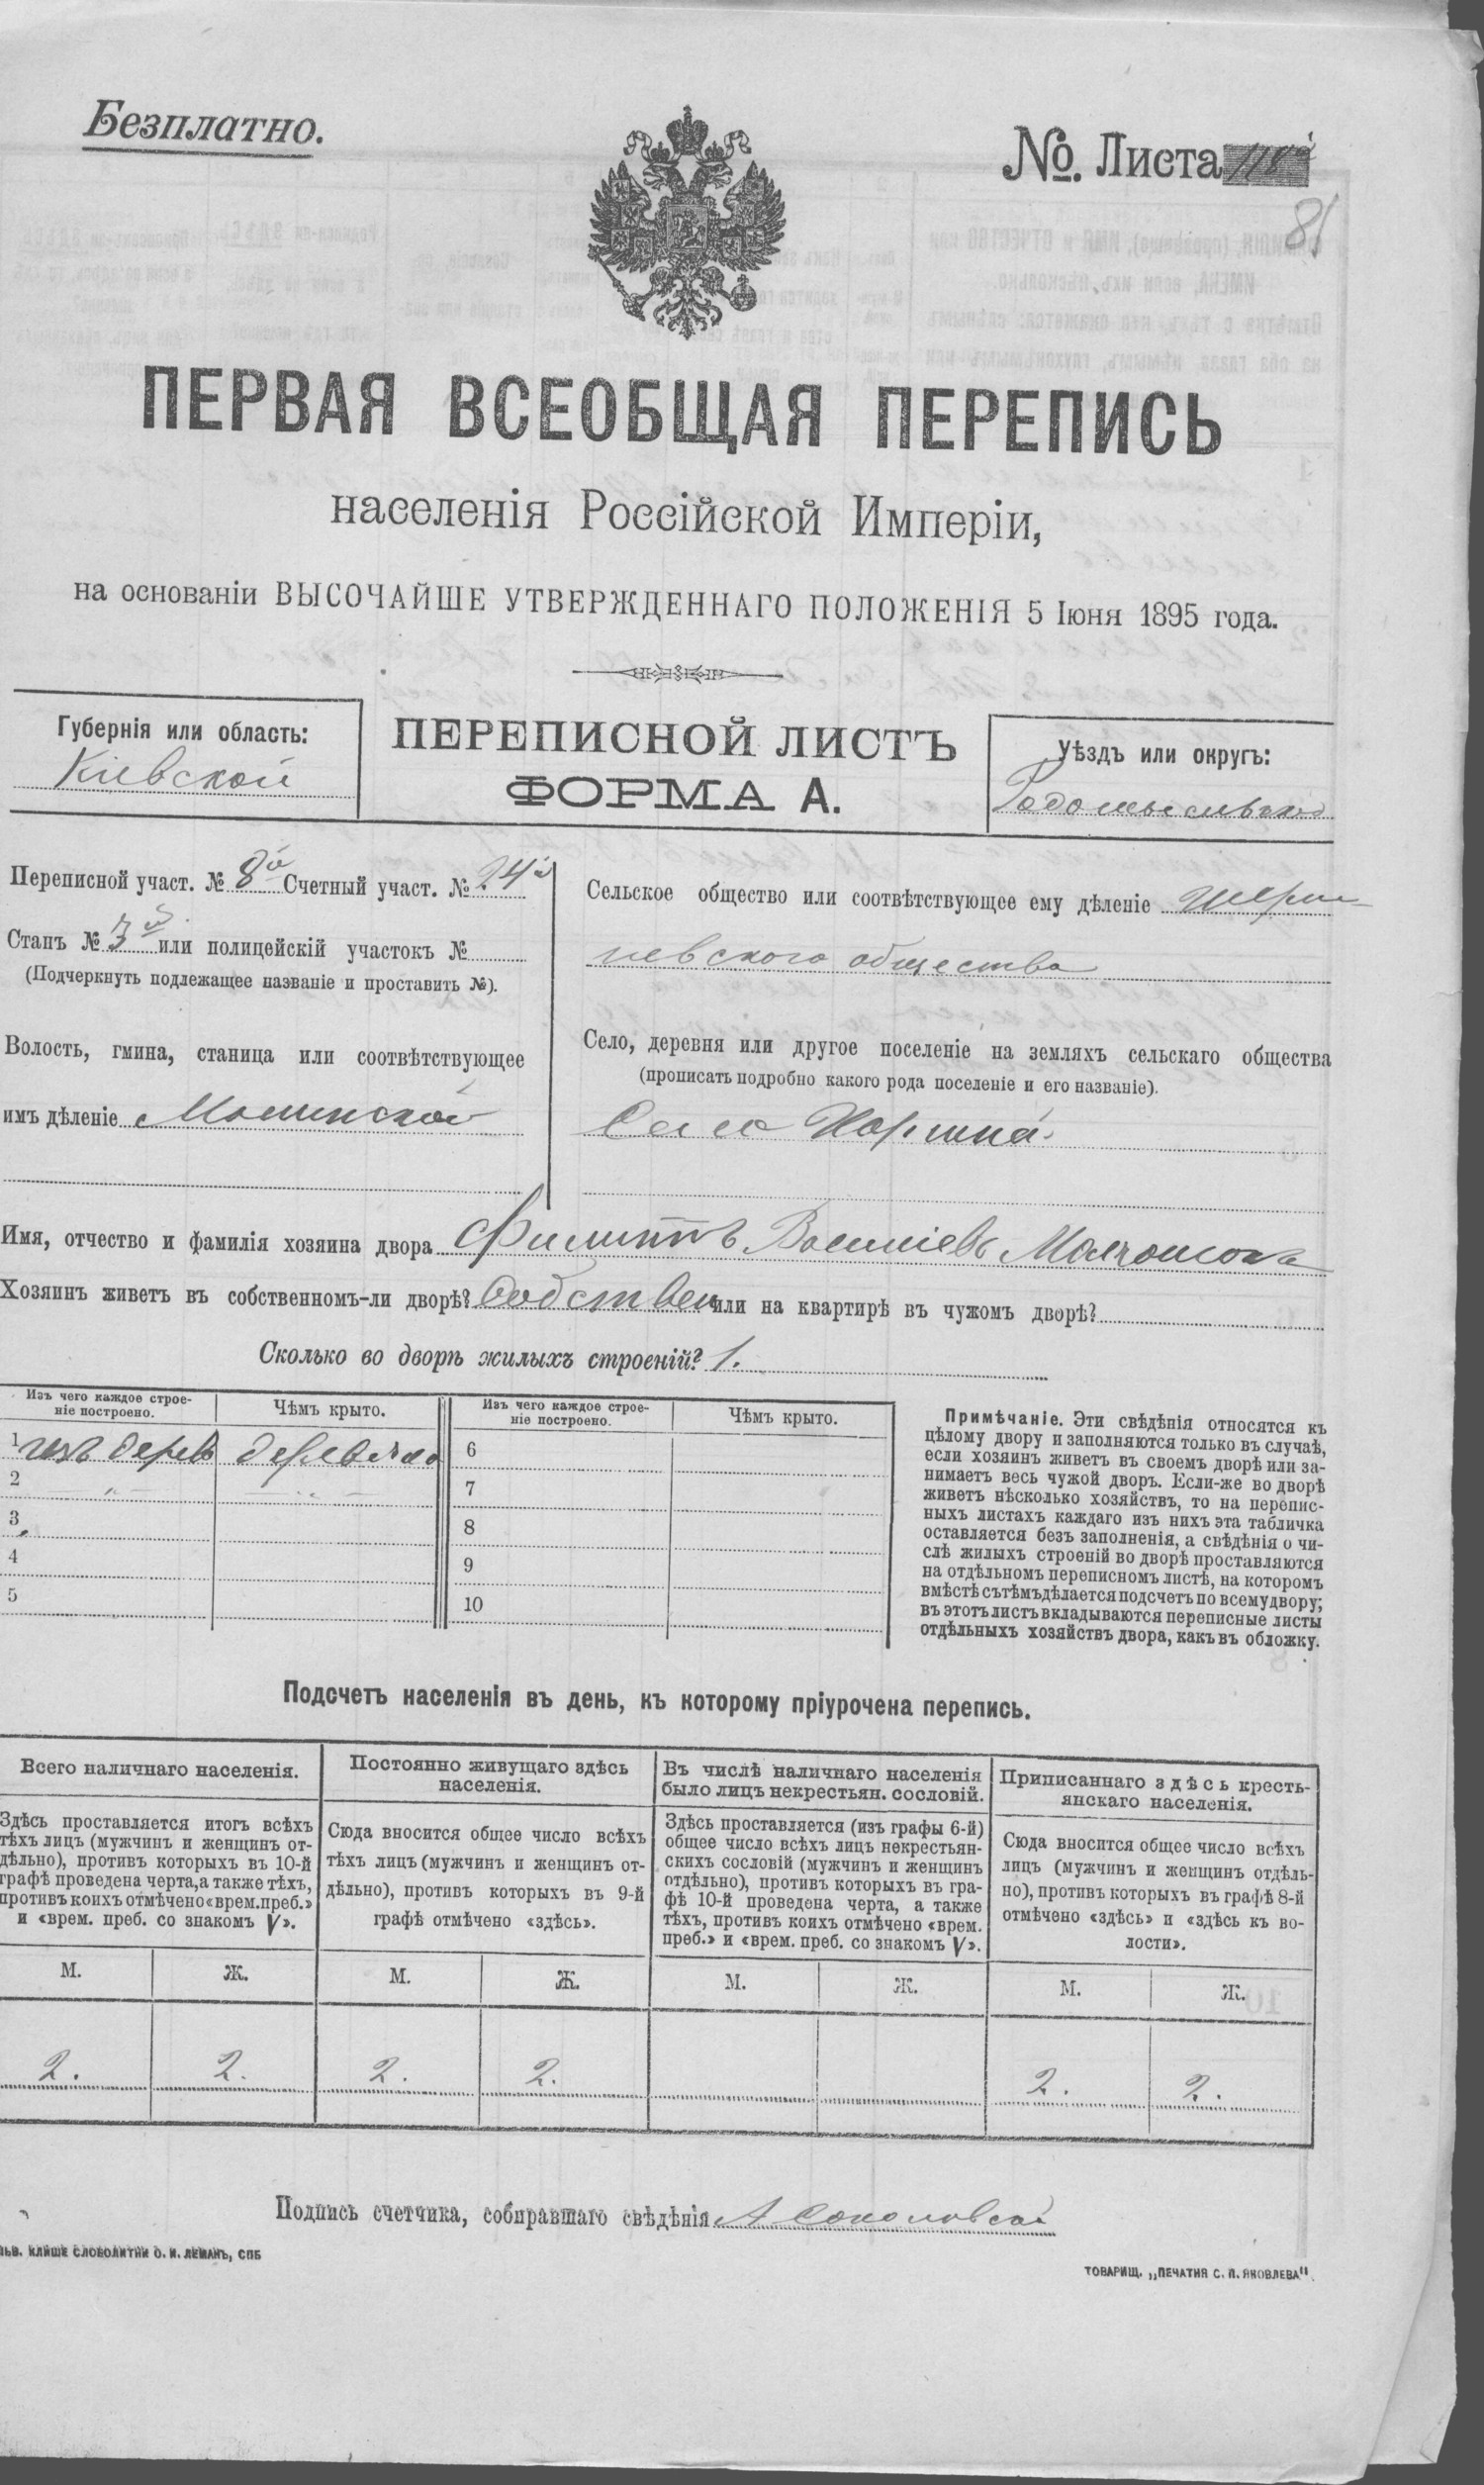 Безплатно.
№. Листа
81
ПЕРВАЯ ВСЕОБЩАЯ ПЕРЕПИСЬ
населенія Россійской Имперіи,
на основаніи ВЫСОЧАЙШЕ УТВЕРЖДЕННАГО ПОЛОЖЕНІЯ 5 Іюня 1895 года.
Губернія или область:
Кіевской
ПЕРЕПИСНОЙ ЛИСТЪ
ФОРМА А.
Уѣздъ или округъ:
Радомысльской
Переписной участ. № 8й Счетный участ. № 24й
Станъ № 3й или полицейскій участокъ №
(Подчеркнуть подлежащее названіе и проставить №).
Волость, гмина, станица или соотвѣтствующее
имъ дѣленіе
Сельское общество или соотвѣтствующее ему дѣленіе
невского общества
Село, деревня или другое поселеніе на земляхъ сельскаго общества
(прописать подробно какого рода поселеніе и его названіе).
Село
Имя, отчество и фамилія хозяина двора Филиппъ Василіевъ
Хозяинъ живетъ въ собственномъ-ли дворѣ? Собствен или на квартирѣ въ чужомъ дворѣ?
Сколько во дворѣ жилыхъ строеній? 1.
Изъ чего каждое строе-
ніе построено.
Чѣмъ крыто.
Изъ чего каждое строе-
ніе построено.
Чѣмъ крыто.
1 изъ дерев
2
3
4
5
6
7
8
9
10
Примѣчаніе. Эти свѣдѣнія относятся къ
цѣлому двору и заполняются только въ случаѣ,
если хозяинъ живетъ въ своемъ дворѣ или за-
нимаетъ весь чужой дворъ. Если-же во дворѣ
живетъ нѣсколько хозяйствъ, то на перепис-
ныхъ листахъ каждаго изъ нихъ эта табличка
оставляется безъ заполненія, а свѣдѣнія о чи-
слѣ жилыхъ строеній во дворѣ проставляются
на отдѣльномъ переписномъ листѣ, на которомъ
вмѣстѣ съ тѣмъ дѣлается подсчетъ по всему двору;
въ этотъ листъ вкладываются переписные листы
отдѣльныхъ хозяйствъ двора, какъ въ обложку.
Подсчетъ населенія въ день, къ которому пріурочена перепись.
Всего наличнаго населенія.
Здѣсь проставляется итогъ всѣхъ
тѣхъ лицъ (мужчинъ и женщинъ от-
дѣльно), противъ которыхъ въ 10-й
графѣ проведена черта, а также тѣхъ,
противъ коихъ отмѣчено «врем. преб.»
и «врем. преб. со знакомъ V».
Постоянно живущаго здѣсь
населенія.
Сюда вносится общее число всѣхъ
тѣхъ лицъ (мужчинъ и женщинъ от-
дѣльно), противъ которыхъ въ 9-й
графѣ отмѣчено «здѣсь».
Въ числѣ наличнаго населенія
было лицъ некрестьян. сословій.
Здѣсь проставляется (изъ графы 6-й)
общее число всѣхъ лицъ некрестьян-
скихъ сословій (мужчинъ и женщинъ
отдѣльно), противъ которыхъ въ гра-
фѣ 10-й проведена черта, а также
тѣхъ, противъ коихъ отмѣчено «врем.
преб.» и «врем. преб. со знакомъ V».
Приписаннаго здѣсь кресть-
янскаго населенія.
Сюда вносится общее число всѣхъ
лицъ (мужчинъ и женщинъ отдѣль-
но), противъ которыхъ въ графѣ 8-й
отмѣчено «здѣсь» и «здѣсь къ во-
лости».
М. Ж. М. Ж. М. Ж. М. Ж.
2. 2. 2. 2. 2. 2.
Подпись счетчика, собиравшаго свѣдѣнія А Соколовскій
КЛИШЕ СЛОВОЛИТНИ О. И. ЛЕМАНЪ, СПБ
ТОВАРИЩ. „ПЕЧАТНЯ С. П. ЯКОВЛЕВА“.